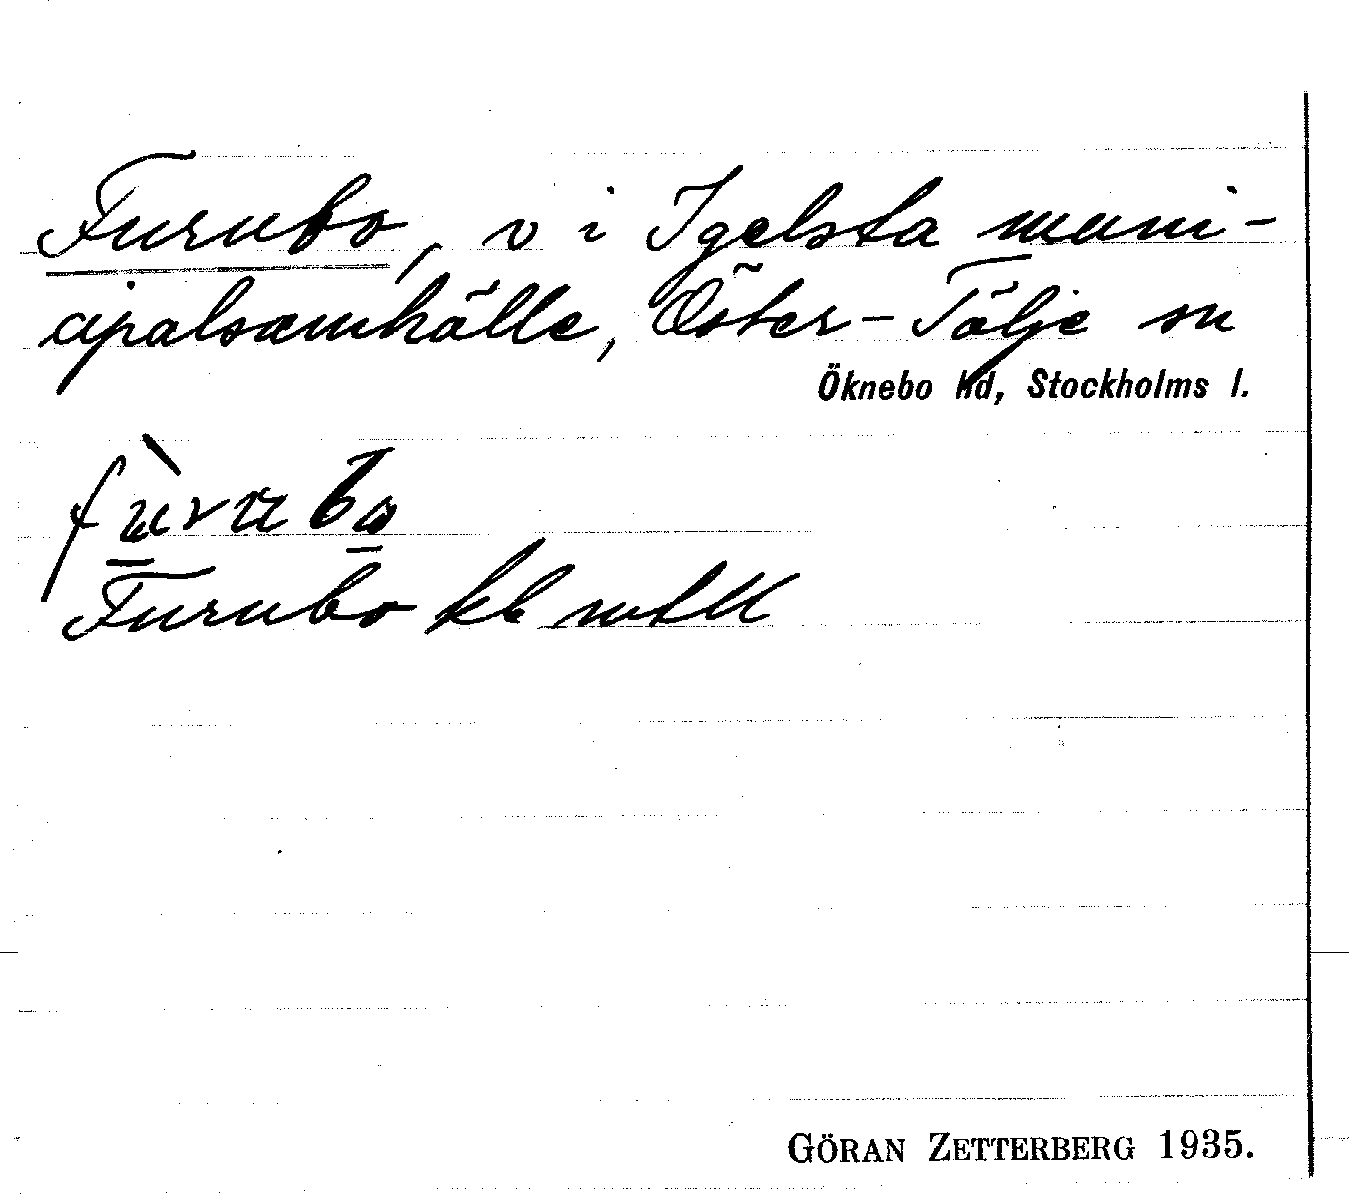 Furubo, v i Igelsta muni-
cipalsamhälle, Öster-Tälje sn
Öknebo hd, Stockholms l.
Furubo kb
GÖRAN ZETTERBERG 1935.